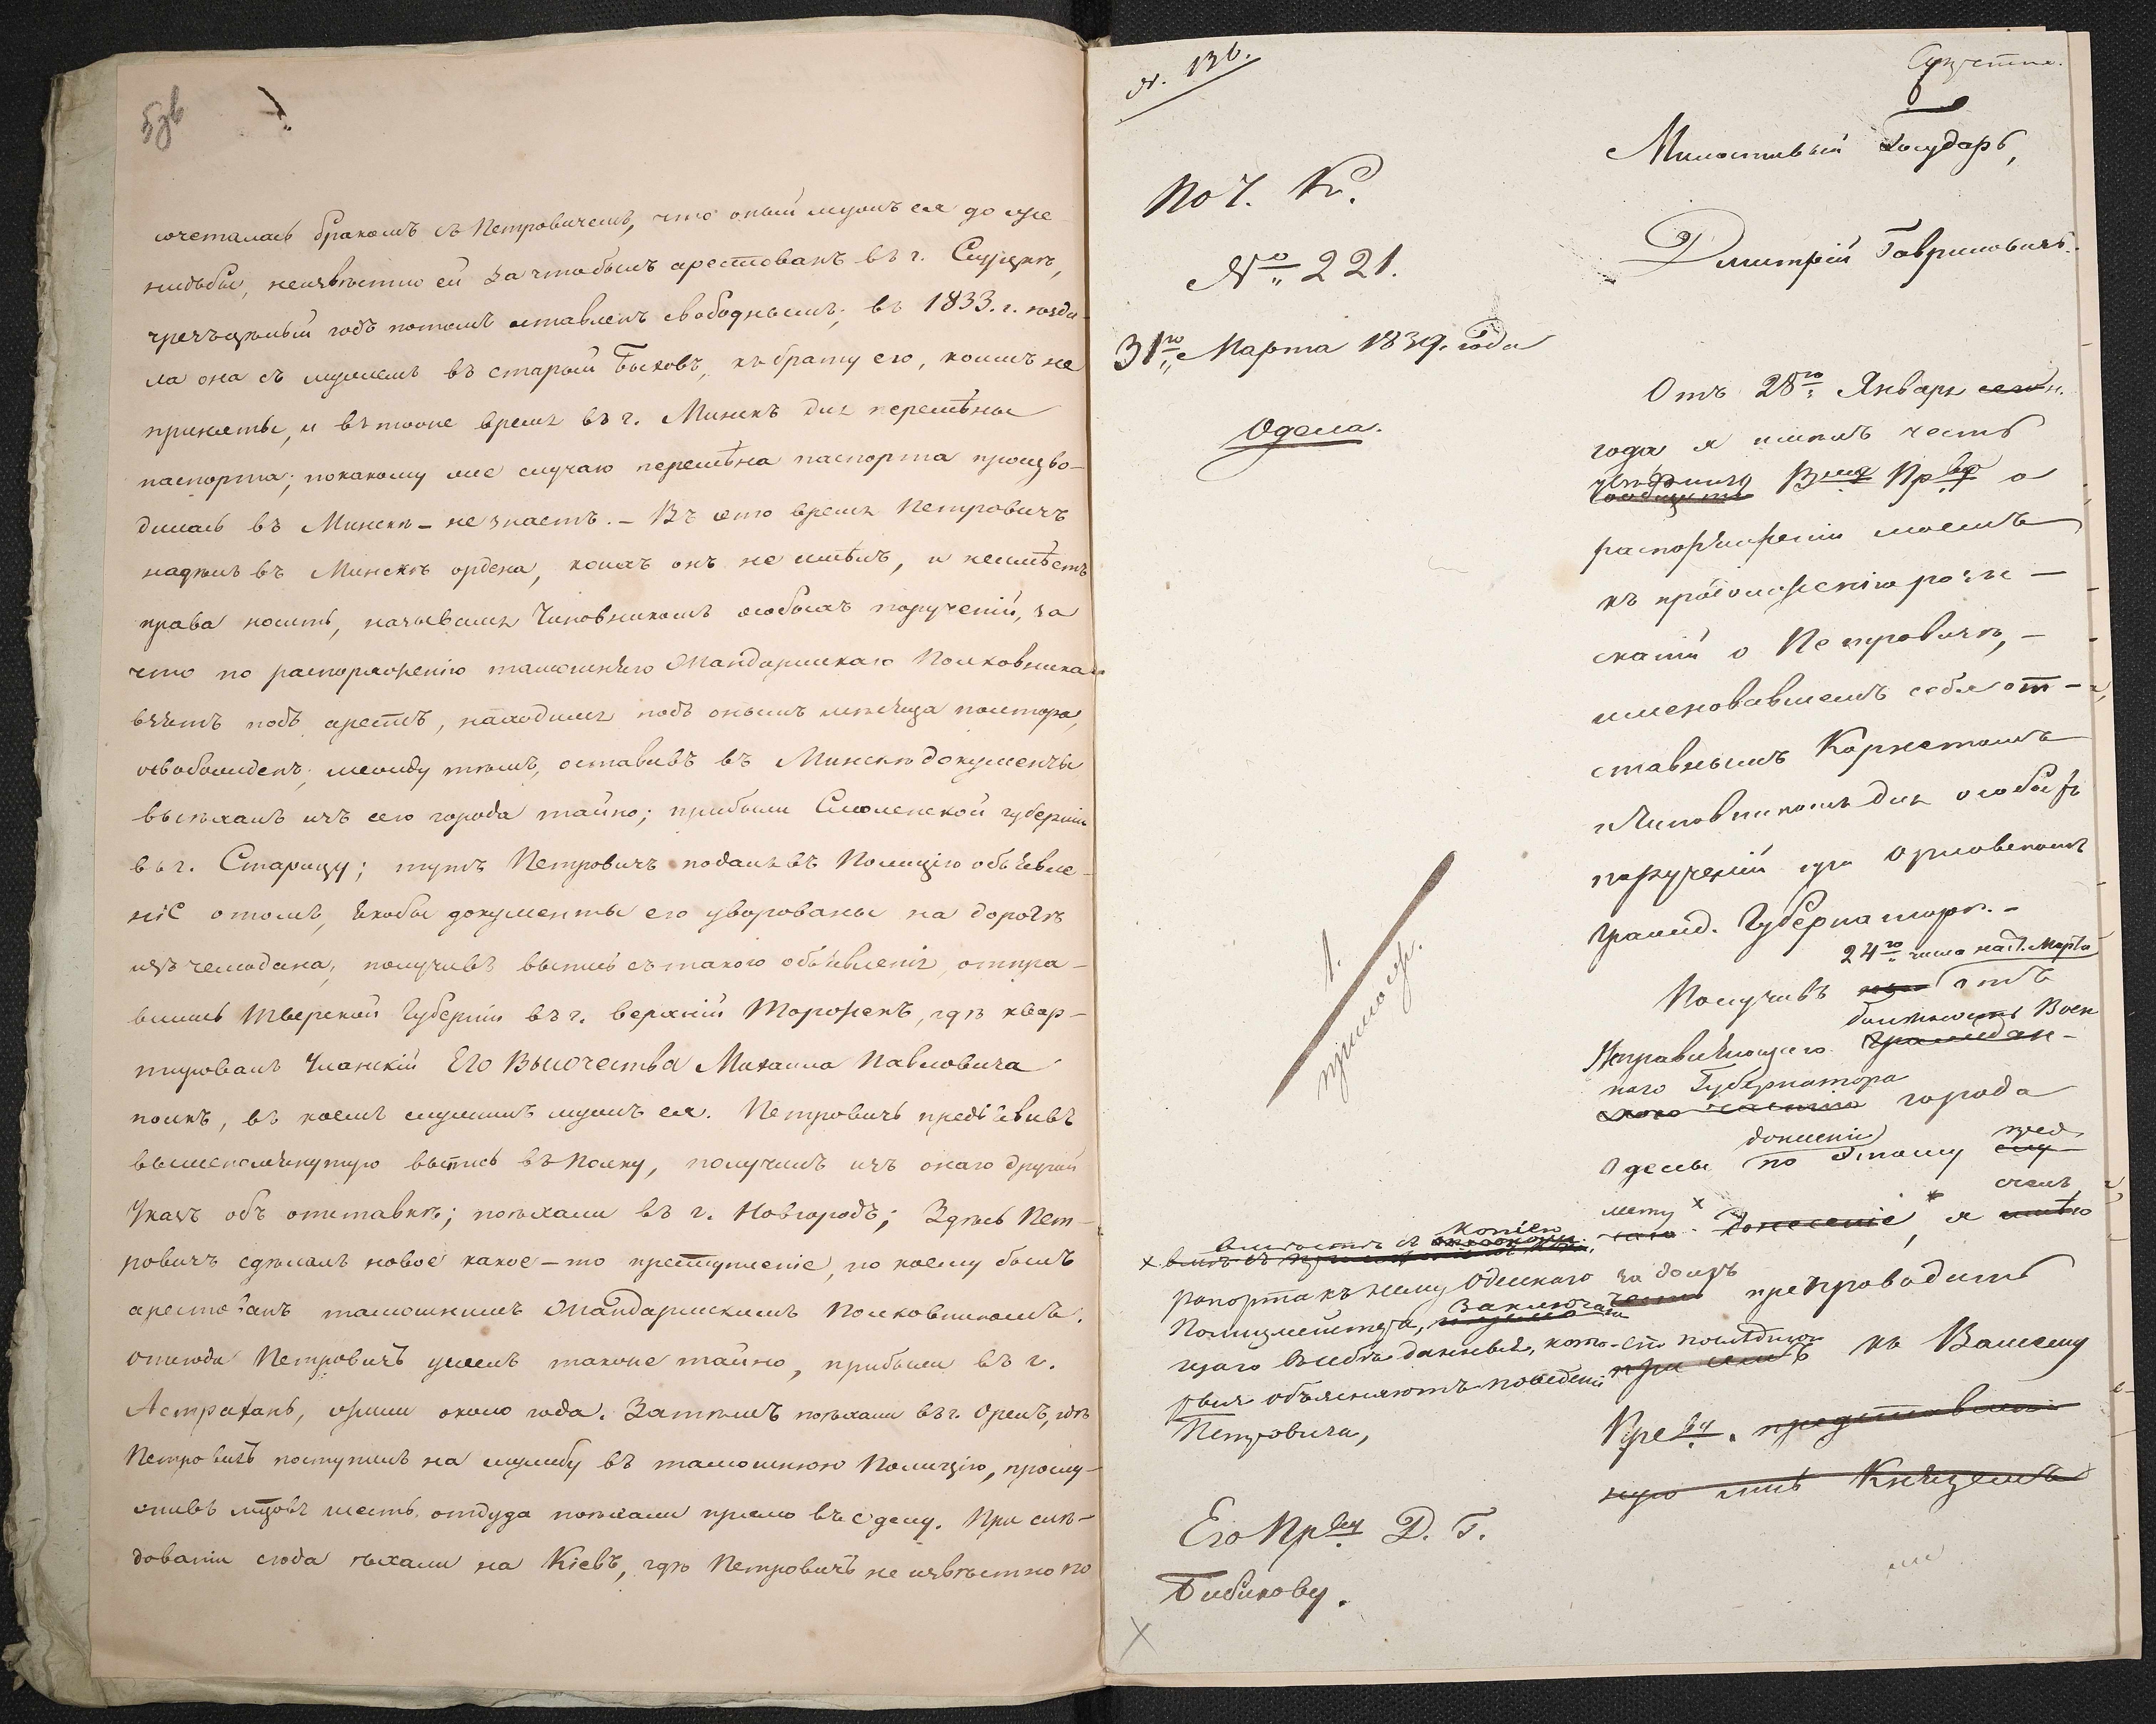 сочеталась бракомъ съ Петровичемъ, что оный мужъ ея до же-
нидьбы, неизвѣстно ей за чтобылъ арестованъ въ г. Слуцкѣ,
чрезъцѣлый годъ потомъ оставленъ свободнымъ; въ 1833. г. поѣха-
ла она съ мужемъ въ старый Быховъ, къ брату его, коимъ не
приняты, и въ тоже время въ г. Минскъ для перемѣны
паспорта; покакому же случаю перемѣна паспорта произво-
дилась въ Минскѣ - не знаетъ. - Въ это время Петровичъ
надѣлъ въ Минскѣ ордена, коихъ онъ не имѣлъ, и неимѣетъ
права носить, назывался Чиновникомъ особыхъ порученій, за
что по распоряженію тамошняго Жандармскаго Полковника
взятъ подъ арестъ, находился подъ онымъ мѣсяца полтора,
освобожденъ; между тѣмъ, оставивъ въ Минскѣ документы
выѣхалъ изъ сего города тайно; прибыли Смоленской губерніи
въ г. Старицу; тутъ Петровичъ подалъ въ Полицію объявле-
ніе отомъ, якобы документы его уворованы на дорогѣ
изъ чемодана; получивъ выпись съ такого объявленія, отпра-
вились Тверской Губерніи въ г. верхній Торожекъ, гдѣ квар-
тировалъ Уланскій Его Высочества Михаила Павловича
полкъ, въ коемъ служилъ мужъ ея. Петровичъ предъявивъ
вышепомянутую выпись въ Полку, получилъ изъ онаго другой
Указъ объ отставкѣ; поѣхали въ г. Новгородъ; Здѣсь Пет-
ровичъ сдѣлалъ новое какое-то преступленіе, по коему былъ
арестованъ тамошнимъ Жандармскимъ Полковникомъ.
Отсюда Петровичъ ушелъ также тайно, прибыли въ г.
Астрахань, жили около года. Затѣмъ поѣхали въ г. Орелъ, гдѣ
Петровичъ поступилъ на службу въ тамошнюю Полицію, прослу-
живъ мѣсяцовъ шесть. отдуда поѣхали прямо въ Одессу. При слѣ-
дованіи сюда ѣхали на Кіевъ, гдѣ Петровичъ не извѣстно по
N. 136.
По Ч. К.
№ 221.
31го Марта 1839. года
Одесса.
1.
прилож.
Милостивый Государь,
Дмитрій Гавриловичъ.
Отъ 28го Января сего
года я имѣлъ честь
Пр. о
распоряженіи моемъ
къ продолженію розы-
сканій о Петровичѣ, -
именовавшемъ себя от-
ставнымъ Корнетомъ
и Чиновникомъ для особыхъ
порученій при Орловскомъ
Гражд. Губернаторѣ. -
24го числа наст. Марта
Получивъ отъ
Исправляющаго должность Воен
наго Губернатора
города
Одессы донесеніе по этому пред
мету х донесеніе, я счелъ
за долгъ препроводить
къ Вашему
Прев. представленіе
Княземъ
х вмѣстѣ съ копіею
рапорта къ нему Одесскаго
Полицмейстера, заключаю
щаго въ себѣ данныя, кото-
рыя объясняютъ поведеніе
Петровича,
Его Пр. Д. Г.
Бибикову.